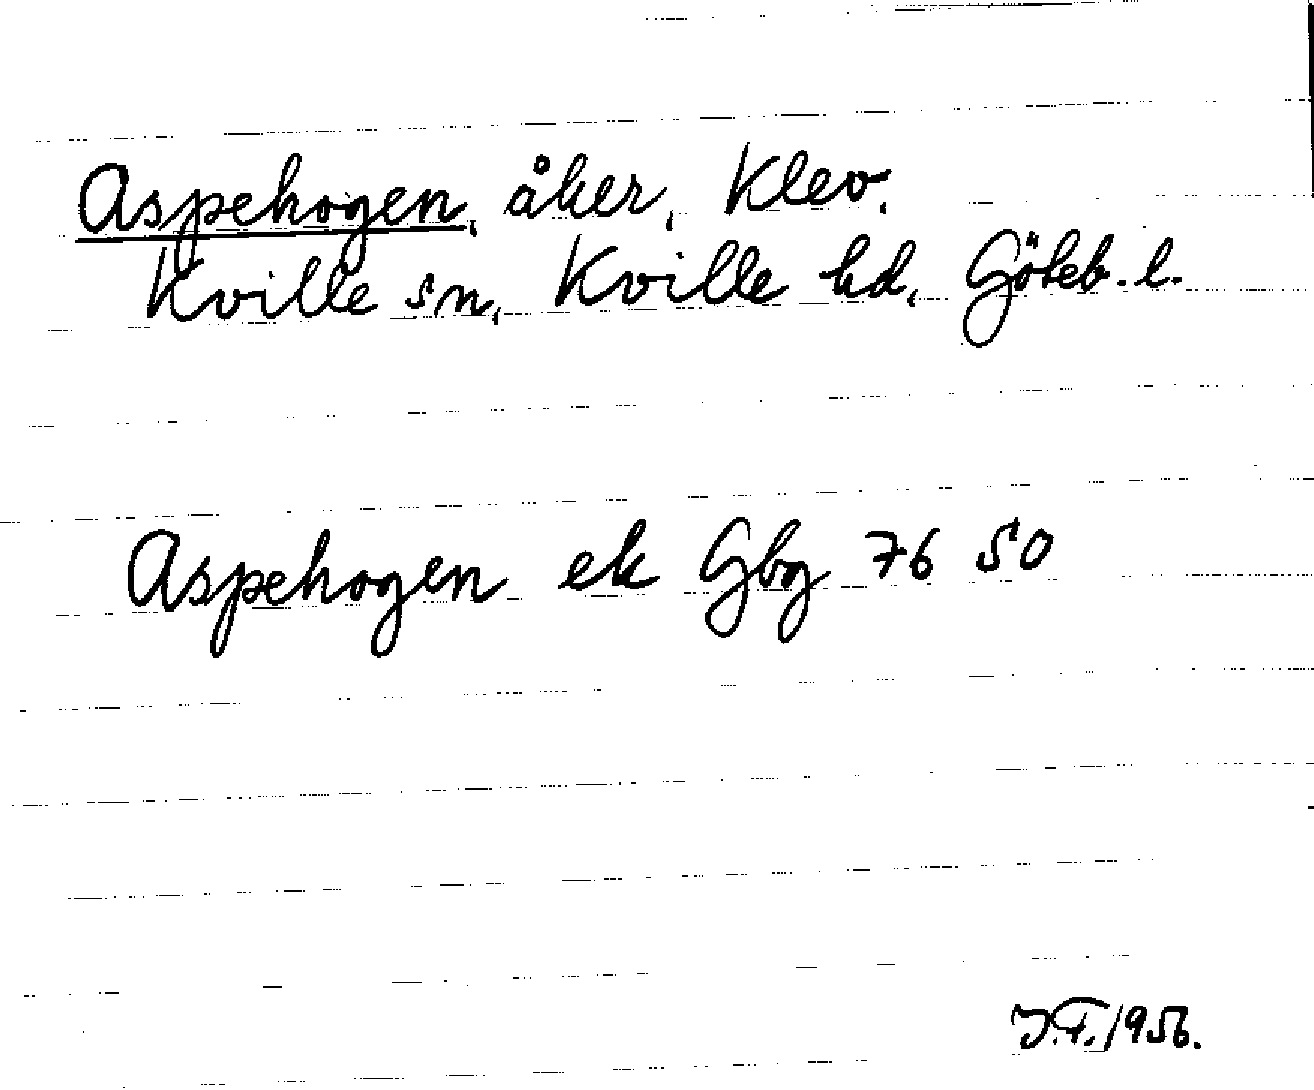 Aspehogen, åker, Klev.
Kville sn, Kville hd, Göteb. l.
Aspehogen ek Gbg 76 50
J.F. 1956.